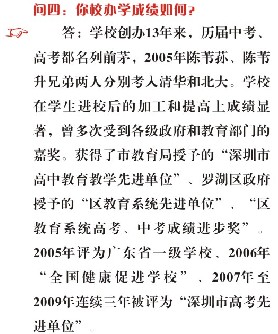 问四：你校办学成绩如何？
答：学校创办13年来，历届中考、
高考都名列前茅，2005年陈苇荪、陈苇
升兄弟两人分别考入清华和北大。学校
在学生进校后的加工和提高上成绩显
著，曾多次受到各级政府和教育部门的
嘉奖。获得了市教育局授予的“深圳市
高中教育教学先进单位”、罗湖区政府
授予的“区教育系统先进单位”、“区
教育系统高考、中考成绩进步奖”。
2005年评为广东省一级学校、2006年
“全国健康促进学校”、2007年至
2009年连续三年被评为“深圳市高考先
进单位”。